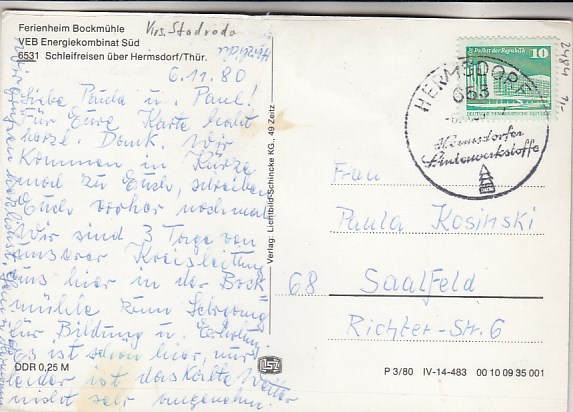 Ferienheim Bockmühle
VEB Energiekombinat Süd
6531 Schleifreisen über Hermsdorf/Thür.
Krs. Stadroda
6.11.80
Liebe Paula u. Paul!
Für Eure Karte
herzl. Dank. Wir
kommen in Kürze
mal zu Euch, schreiben
Euch vorher nochmal
Wir sind 3 Tage von
unserer Kreisleitung
aus hier in der Bock
mühle zum Lehrgang
für Bildung u. Erholung
Es ist schön hier, nur
leider ist das kalte Wetter
nicht sehr angenehm.
DDR 0,25 M
Verlag: Lichtbild-Schincke KG., 49 Zeitz
Palast der Republik
10
HERMSDORF
653
Hermsdorfer
Sinterwerkstoffe
2484
Frau
Paula Kosinski
68 Saalfeld
Richter-Str. 6
P 3/80 IV-14-483 00 10 09 35 001